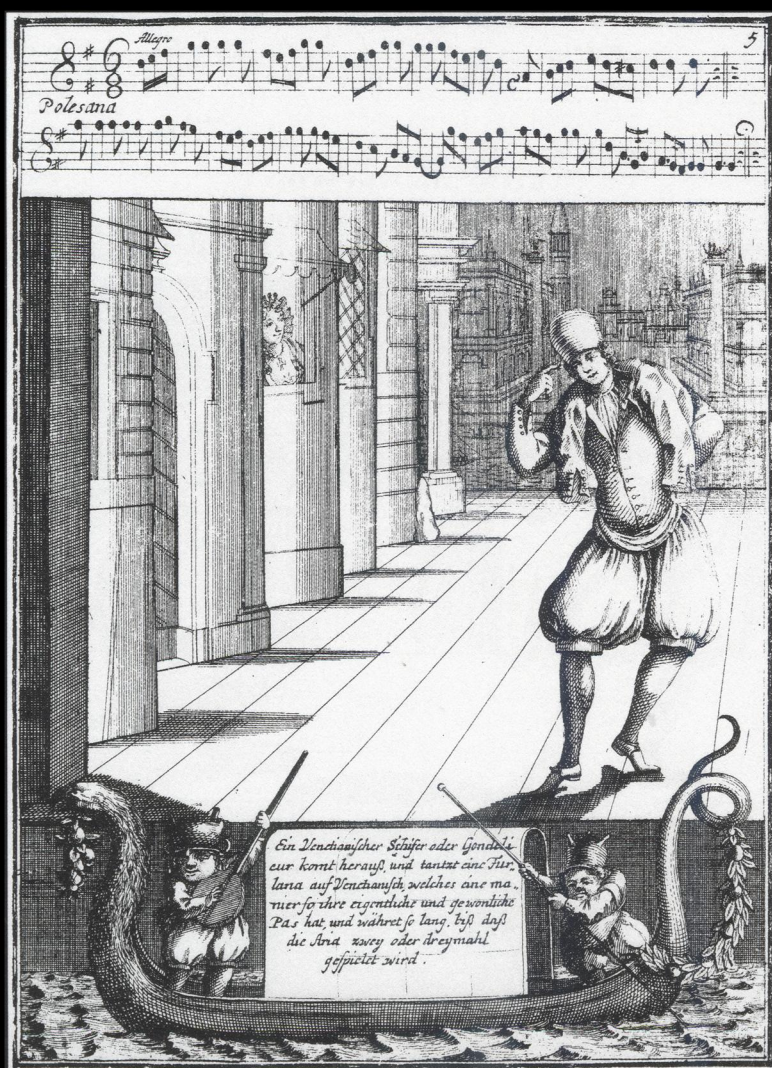 Allegro
5
Polesana
Ein Venetianischer Schifer oder Gondeli
eur komt herauß, und tantzt eine Fur„
lana auf Venetianisch, welches eine ma„
nier so ihre eigentliche und gewonliche
Pas hat, und währet so lang, biß daß
die Aria zwey oder dreymahl
gespielet wird.